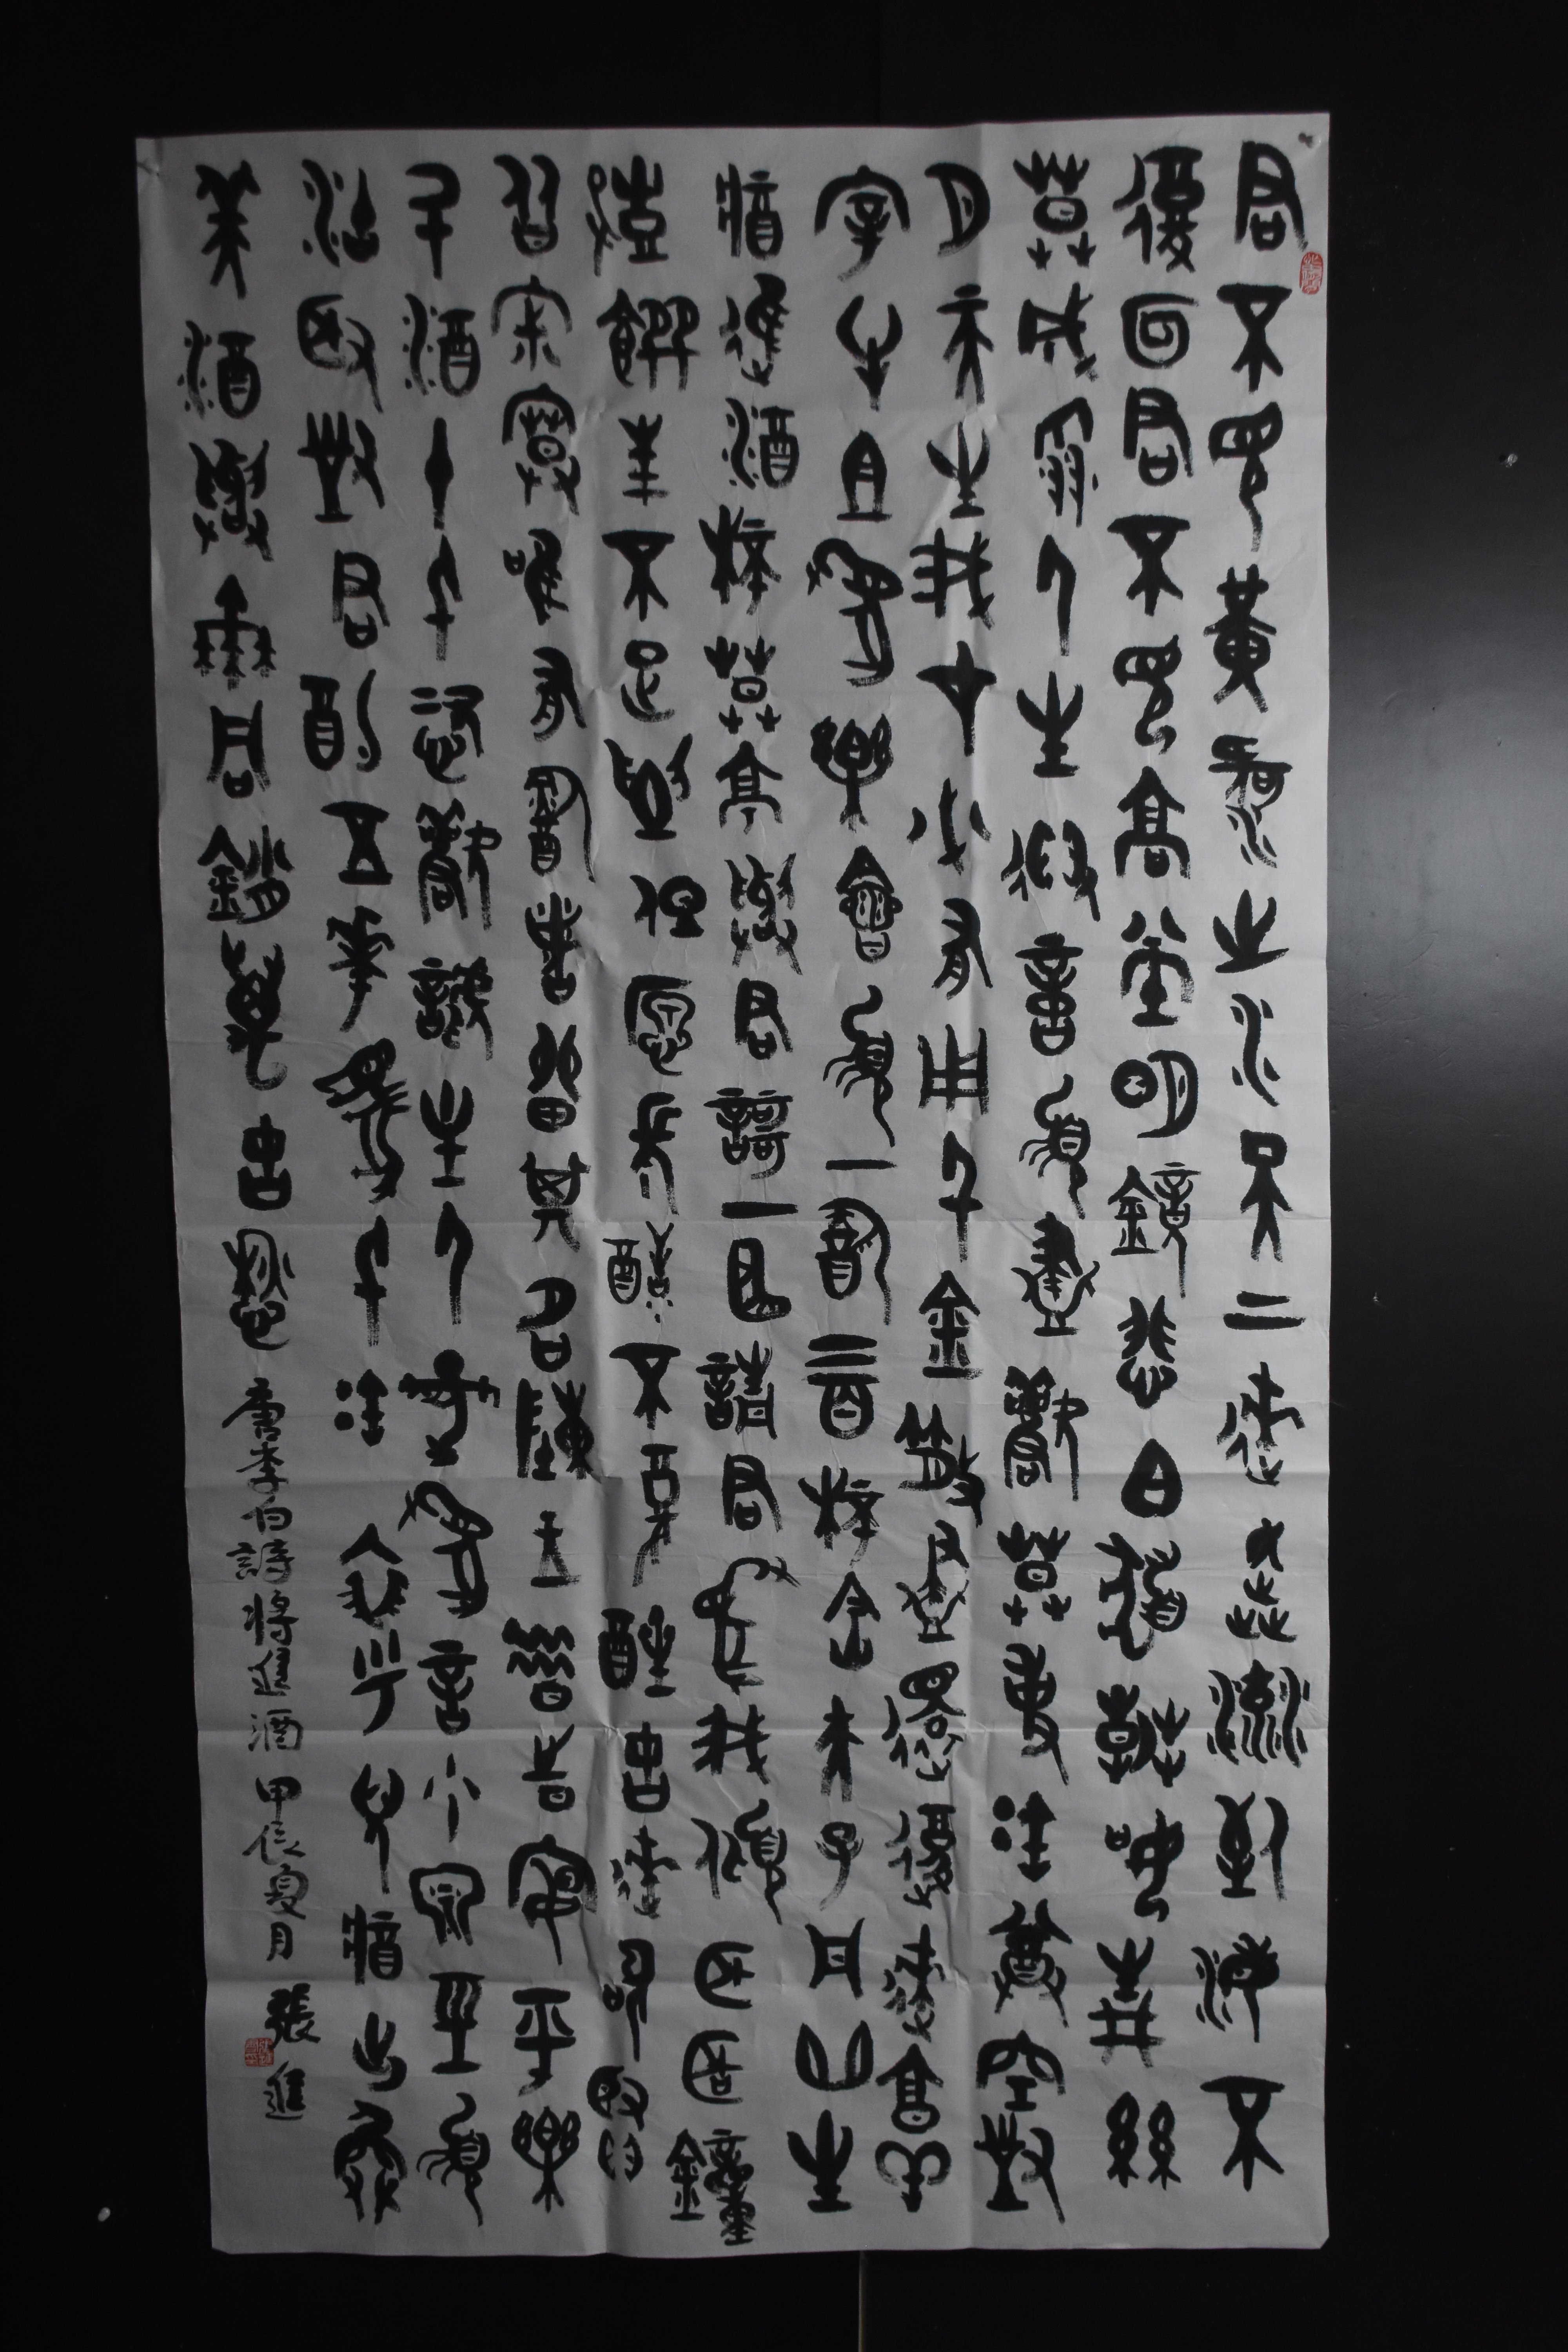 君不見黃河之水天上來奔流到海不
復回君不見高堂明鏡悲白髮朝如青絲
莫成雪人生得意須盡歡莫使金尊空對
月天生我才必有用千金散盡還復來烹羊
宰牛且為樂會須一飲三百杯岑夫子丹丘生
將進酒杯莫停與君歌一曲請君為我傾耳聽鐘
鼓饌玉不足貴但願長醉不醒古來聖賢
皆寂寞唯有飲者留其名陳王昔時宴平樂
斗酒十千恣歡謔主人何為言少錢徑須
沽取對君酌五花馬千金裘呼兒將出換
美酒與爾同銷萬古愁 唐李白詩將進酒 甲辰夏月 張進